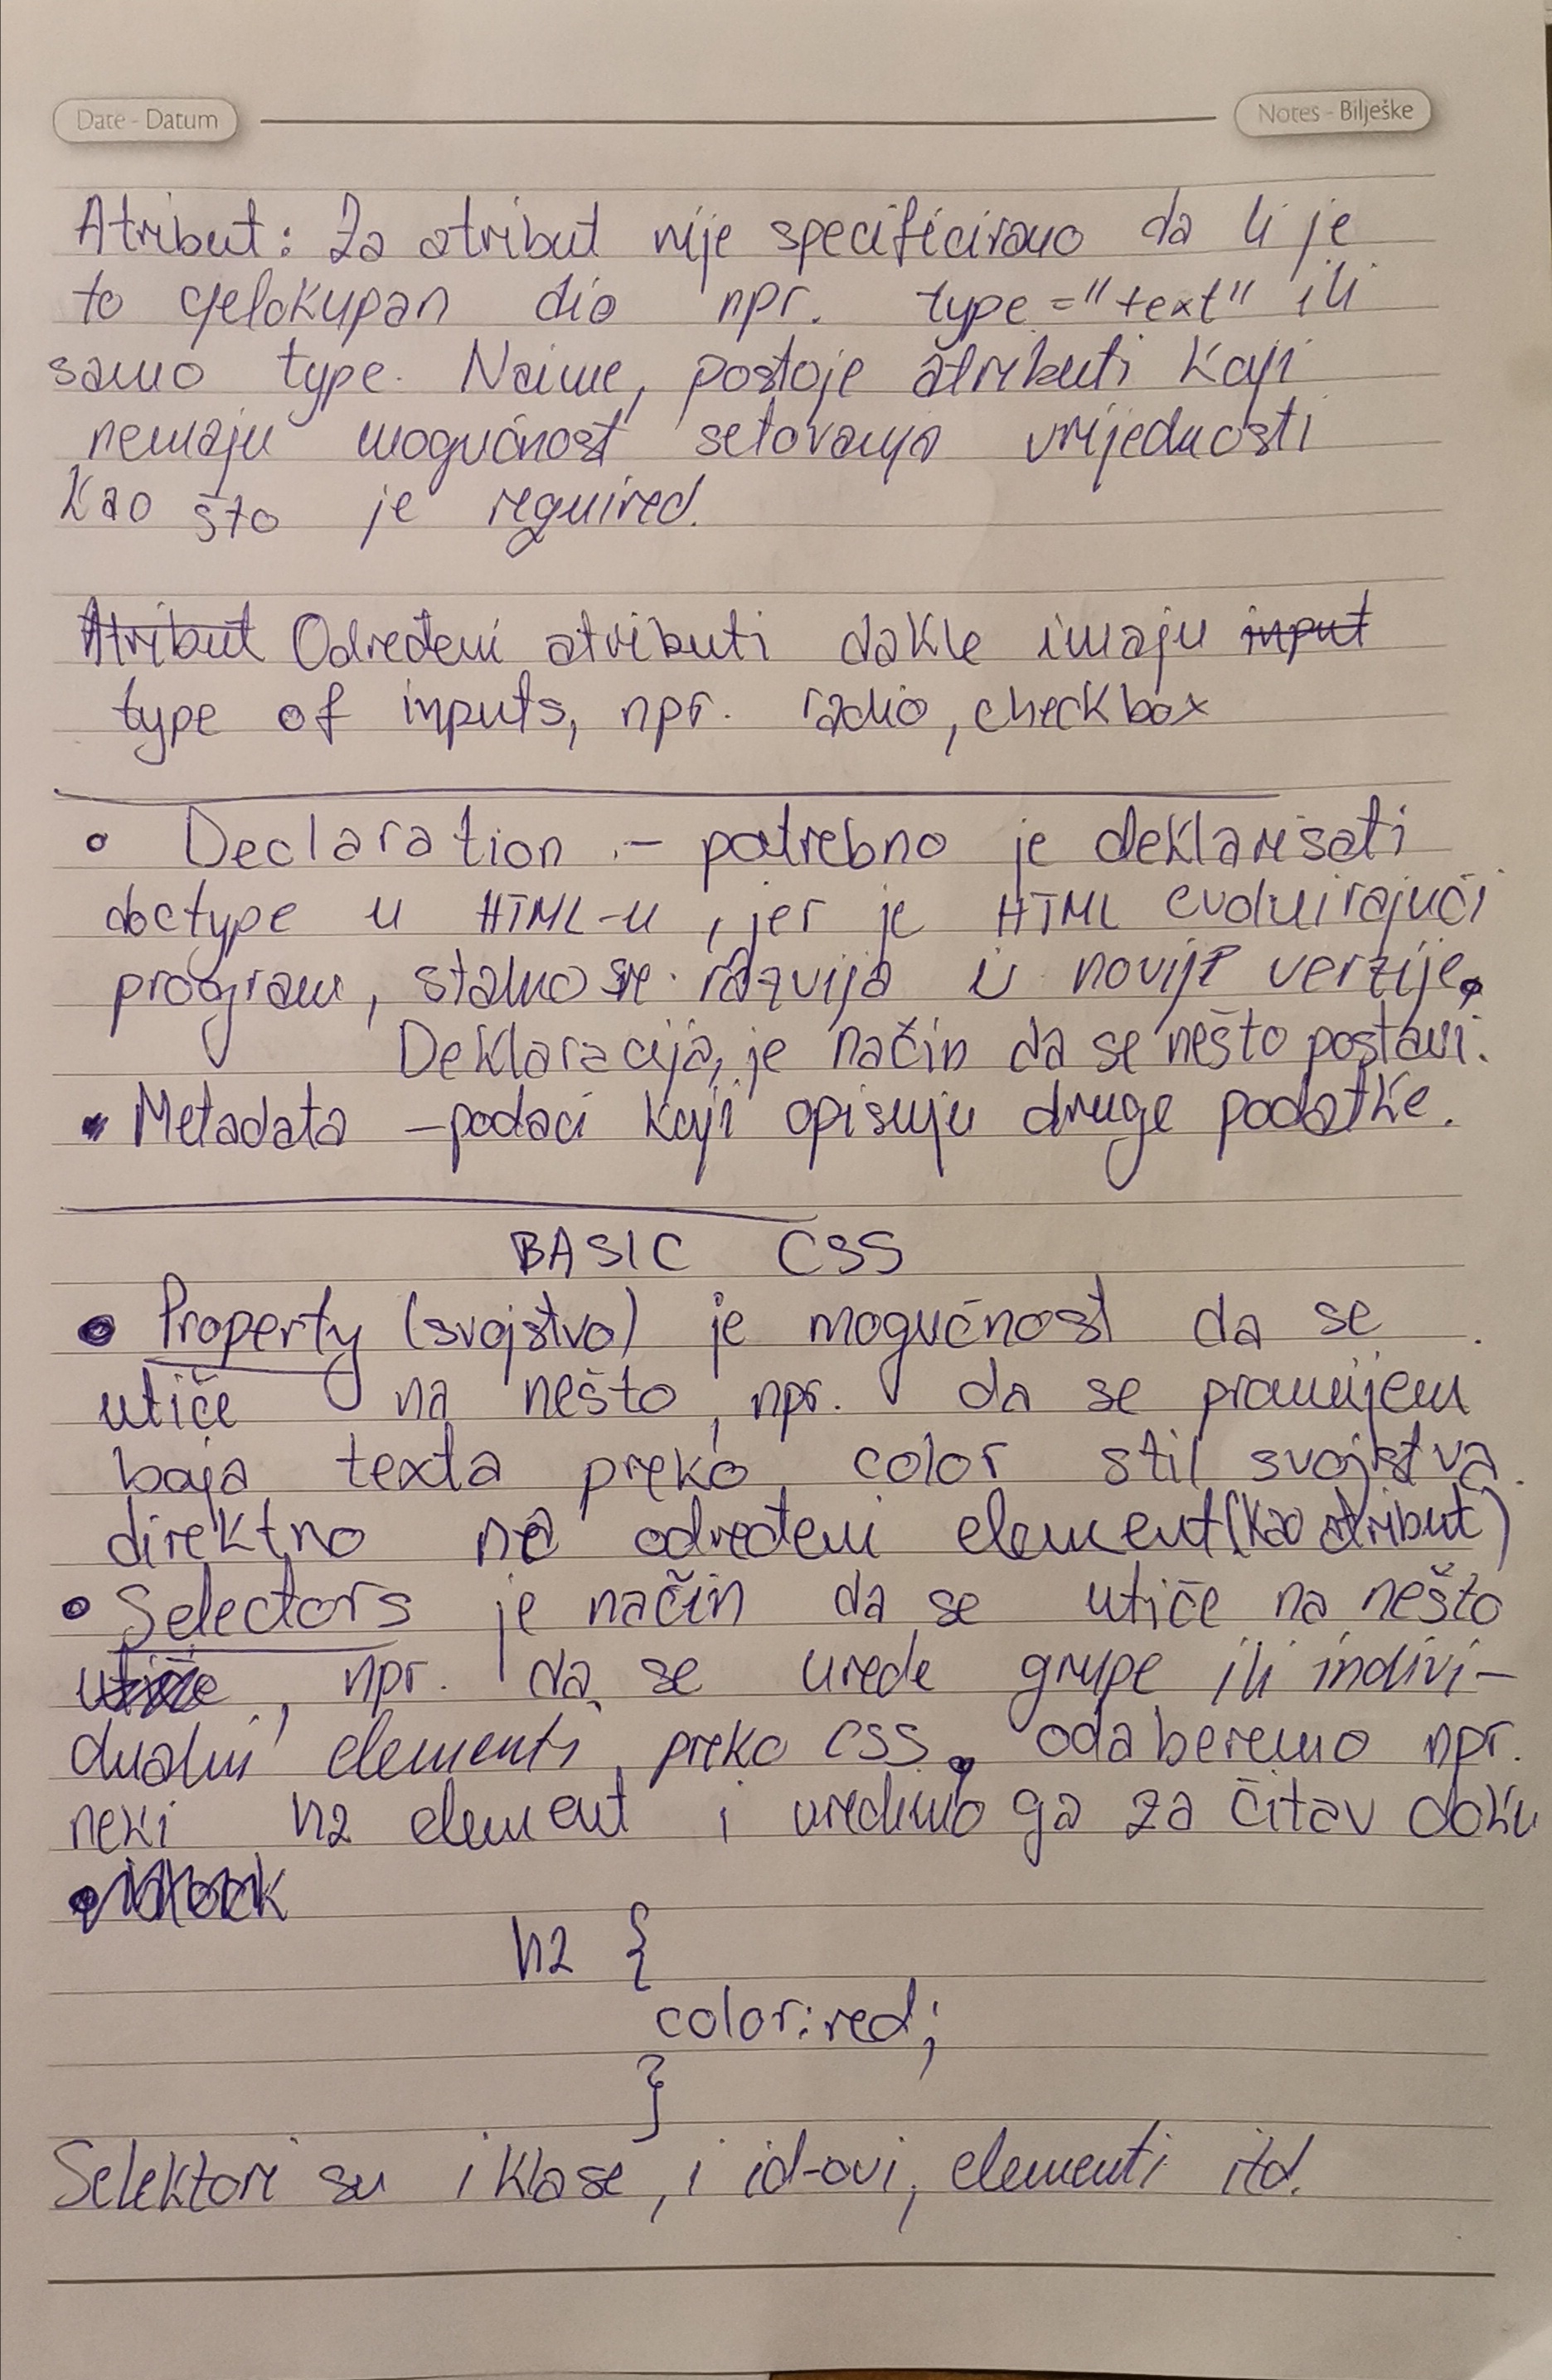 Date - Datum
Notes - Bilješke
Atribut: Za atribut nije specificirano da li je
to cjelokupan dio npr. type="text" ili
samo type. Naime, postoje atributi koji
nemaju mogućnost setovanja vrijednosti
kao što je required.
Atribut Određeni atributi dakle imaju input
type of inputs, npr. radio, checkbox
• Declaration - potrebno je deklarisati
doctype u HTML-u, jer je HTML evoluirajući
program, stalno se razvija u novije verzije.
Deklaracija, je način da se nešto postavi.
• Metadata - podaci koji opisuju druge podatke.
BASIC CSS
• Property (svojstvo) je mogućnost da se
utiče na nešto, npr. da se promijeni
boja texta preko color stil svojstva
direktno na određeni element (kao atribut)
• Selectors je način da se utiče na nešto
utiče, npr. da se urede grupe ili indivi-
dualni elementi preko CSS. odaberemo npr.
neki h2 element i uredimo ga za čitav doku
h2 {
color:red;
}
Selektori su i klase, i id-ovi, elementi itd.